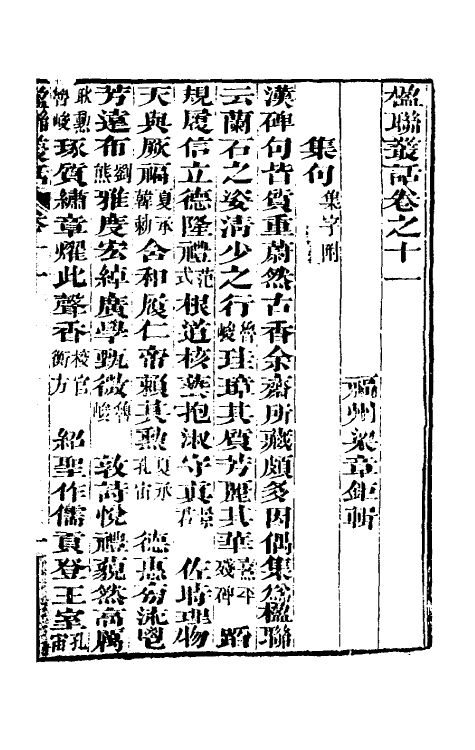 楹聯叢話卷之十一
福州梁章鉅輯
集句集字附
漢碑句皆質重蔚然古香余齋所藏頗多因偶集爲楹聯
云蘭石之姿清少之行魯峻珪璋其質芳麗其華熹平殘碑 蹈
規履信立德隆禮范式根道核藝抱淑守真景君 佐時理物
天與厥福夏承韓勅含和履仁帝賴其勳夏承孔宙 德惠
芳遠布劉熊雅度宏綽廣學甄微魯峻 敦詩悅禮藐然高厲
耿勳魯峻琢質繡章燿此聲香校官衡方 紹聖作儒貢登王室孔宙
楹聯叢話 卷十一 一